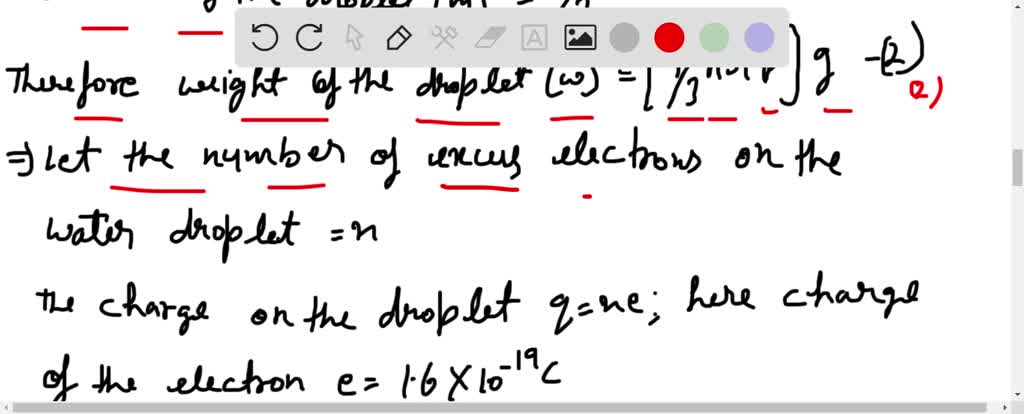 Therefore weight of the droplet (w) = [4/3 πr³ρ] g -(2)
2)
⇒ Let the number of excess electrons on the
water droplet = n
the charge on the droplet q=ne; here charge
of the electron e= 1.6 X 10⁻¹⁹C